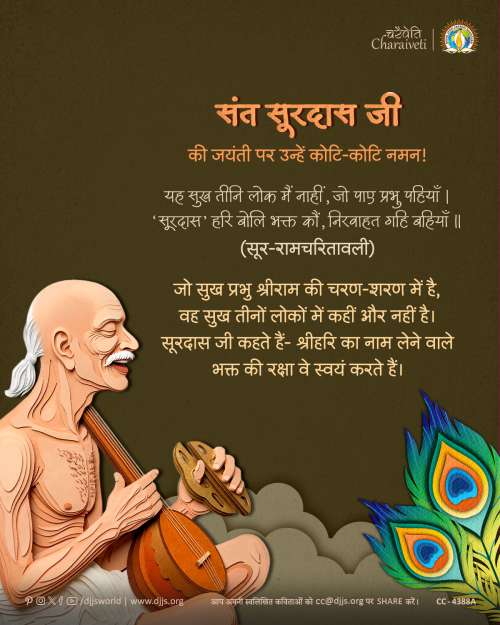 चरैवेति
Charaiveti
संत सूरदास जी
की जयंती पर उन्हें कोटि-कोटि नमन!
यह सुख तीनि लोक मैं नाहीं, जो पाए प्रभु पहियाँ |
‘सूरदास’ हरि बोलि भक्त कौं, निरवाहत गहि बहियाँ ||
(सूर-रामचरितावली)
जो सुख प्रभु श्रीराम की चरण-शरण में है,
वह सुख तीनों लोकों में कहीं और नहीं है।
सूरदास जी कहते हैं- श्रीहरि का नाम लेने वाले
भक्त की रक्षा वे स्वयं करते हैं।
/djjsworld | www.djjs.org
आप अपनी स्वलिखित कविताओं को cc@djjs.org पर SHARE करें।
CC- 4388A